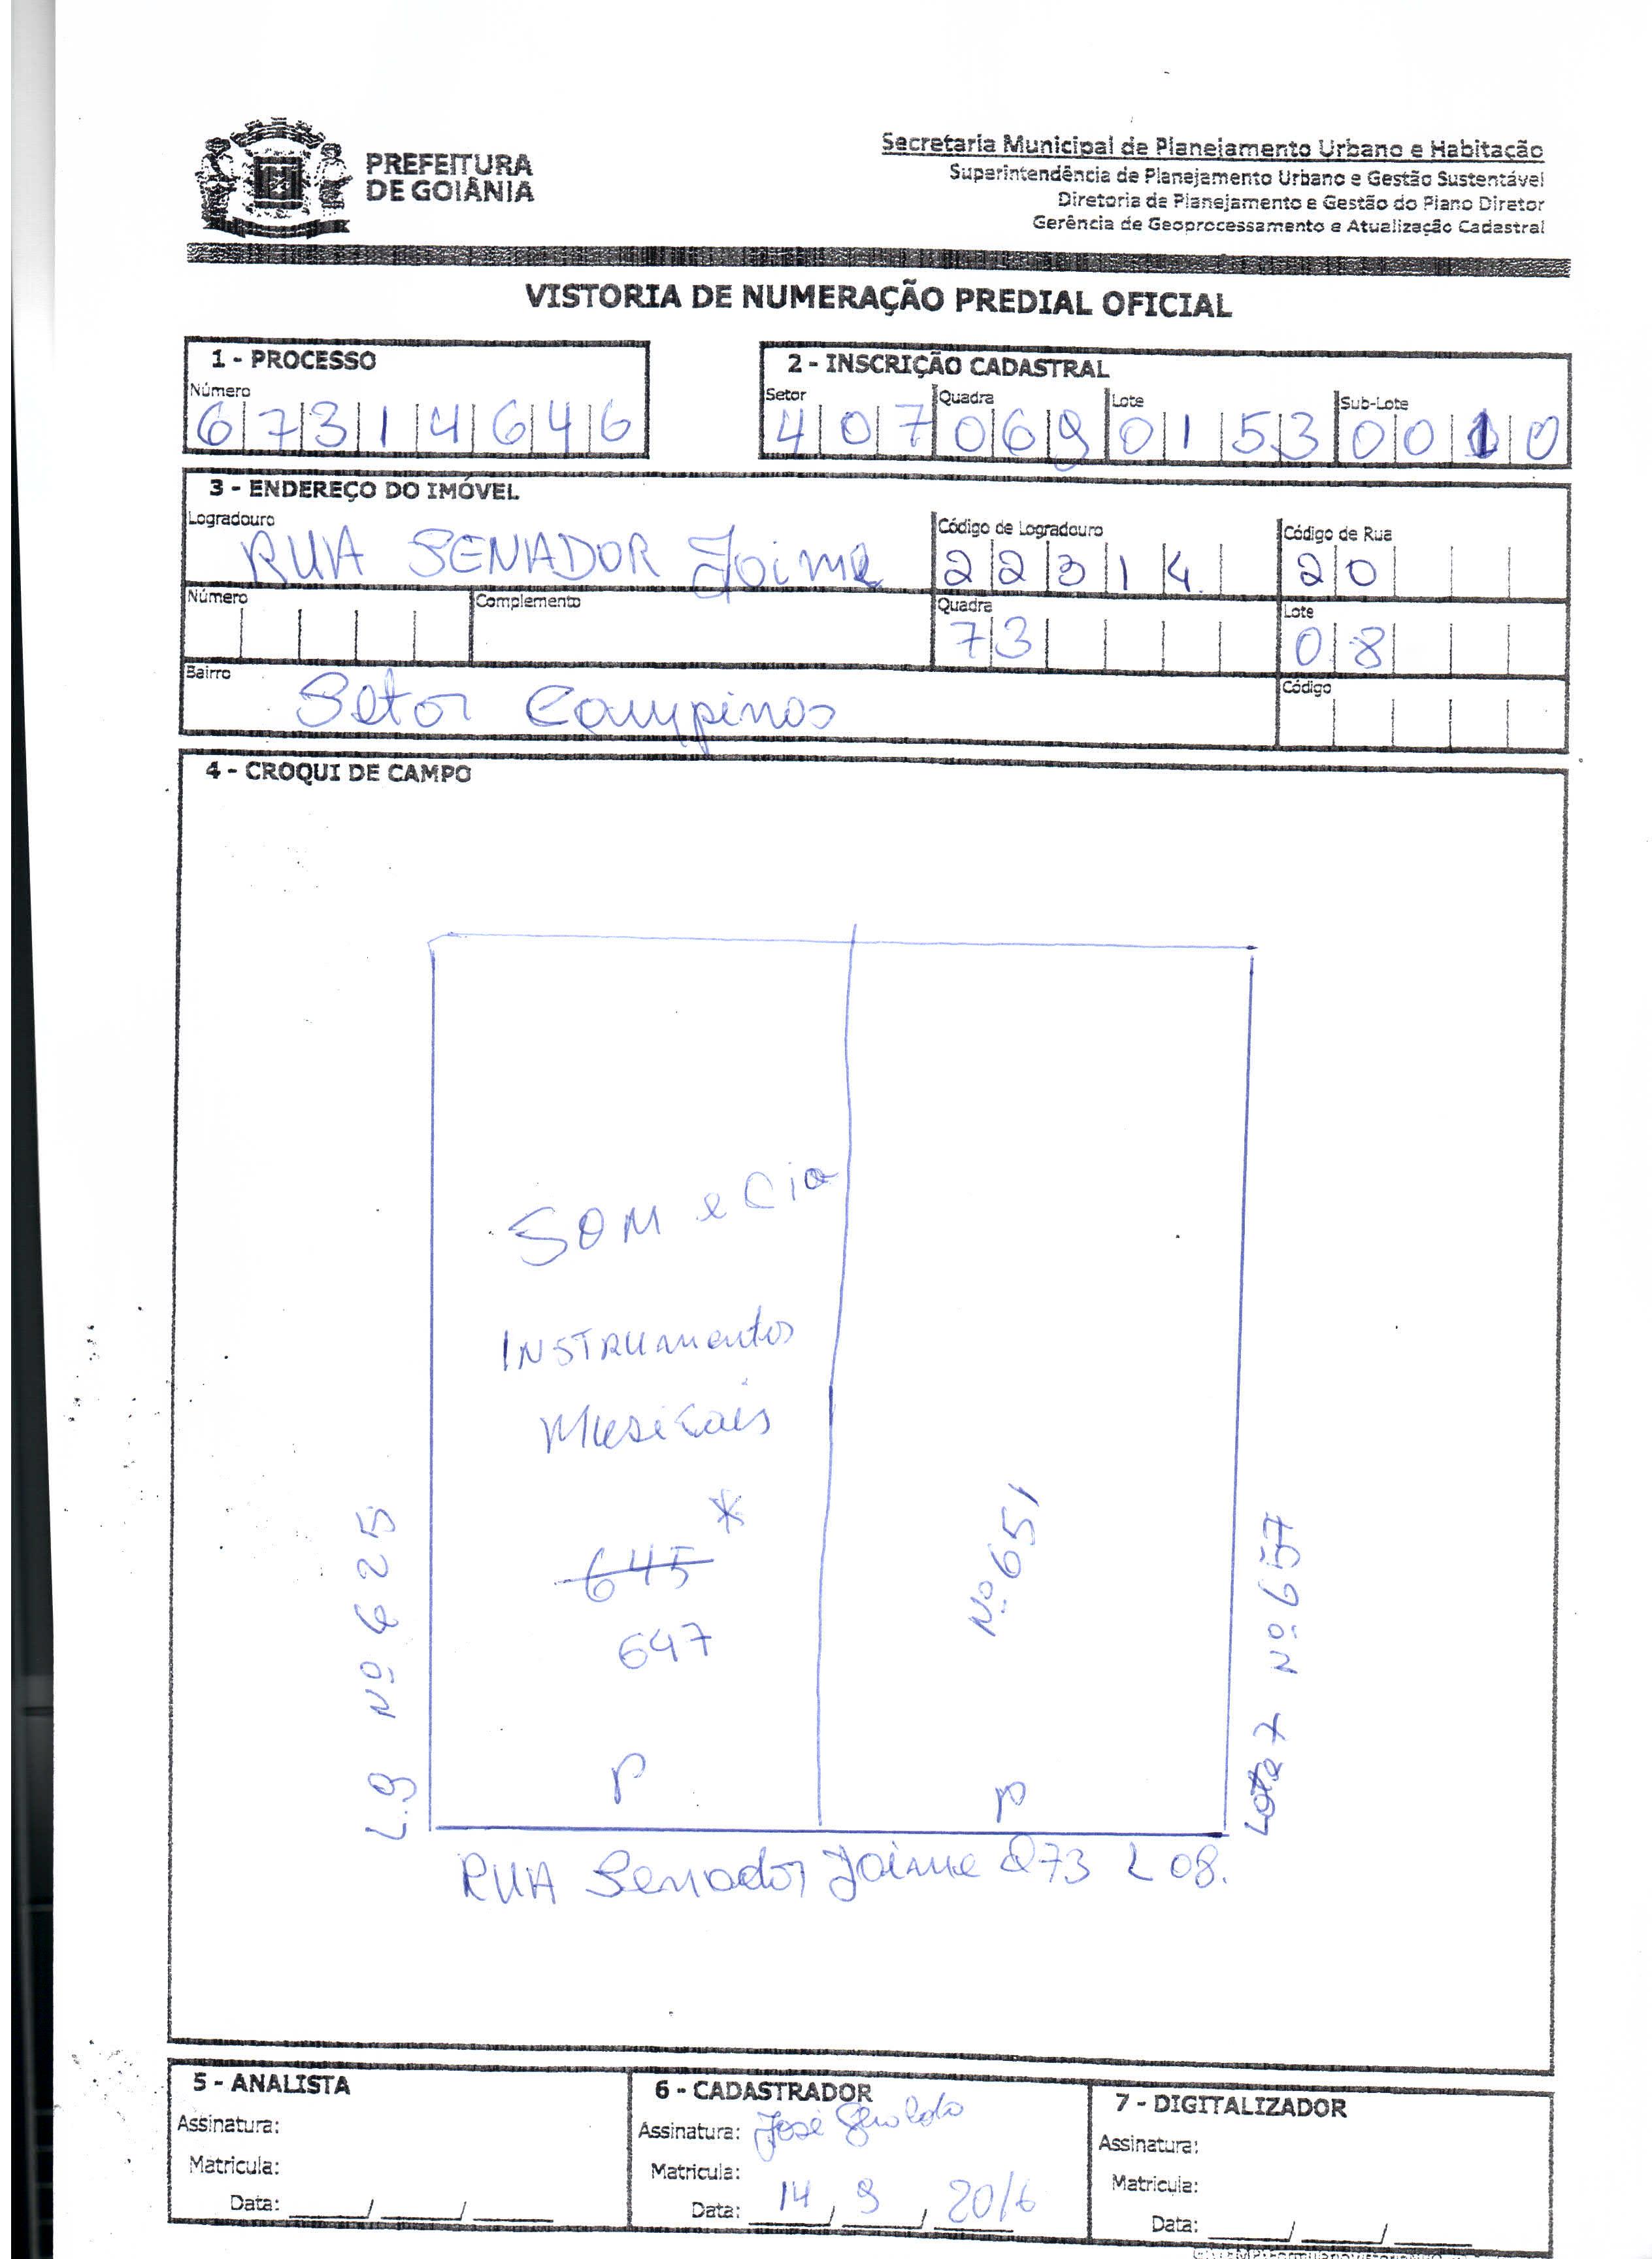 PREFEITURA
DE GOIÂNIA
Secretaria Municipal de Planejamento Urbano e Habitação
Superintendência de Planejamento Urbano e Gestão Sustentável
Diretoria de Planejamento e Gestão do Plano Diretor
Gerência de Geoprocessamento e Atualização Cadastral
VISTORIA DE NUMERAÇÃO PREDIAL OFICIAL
1 - PROCESSO
Número
67314646
2 - INSCRIÇÃO CADASTRAL
Setor Quadra Lote Sub-Lote
407 069 0153 0010
3 - ENDEREÇO DO IMÓVEL
Logradouro Código de Logradouro Código de Rua
RUA SENADOR Jaime 22314 20
Número Complemento Quadra Lote
73 08
Bairro Código
Setor Campinas
4 - CROQUI DE CAMPO
SOM e Cia
INSTRUmentos
Musicais
*
645
647
Nº 651
L.9 Nº 625
Lote 7 Nº 657
P P
RUA Senador Jaime Q73 L 08.
5 - ANALISTA
Assinatura:
Matricula:
Data: ____/____/____
6 - CADASTRADOR
Assinatura: José
Matricula:
Data: 14/9/2016
7 - DIGITALIZADOR
Assinatura:
Matricula:
Data: ____/____/____